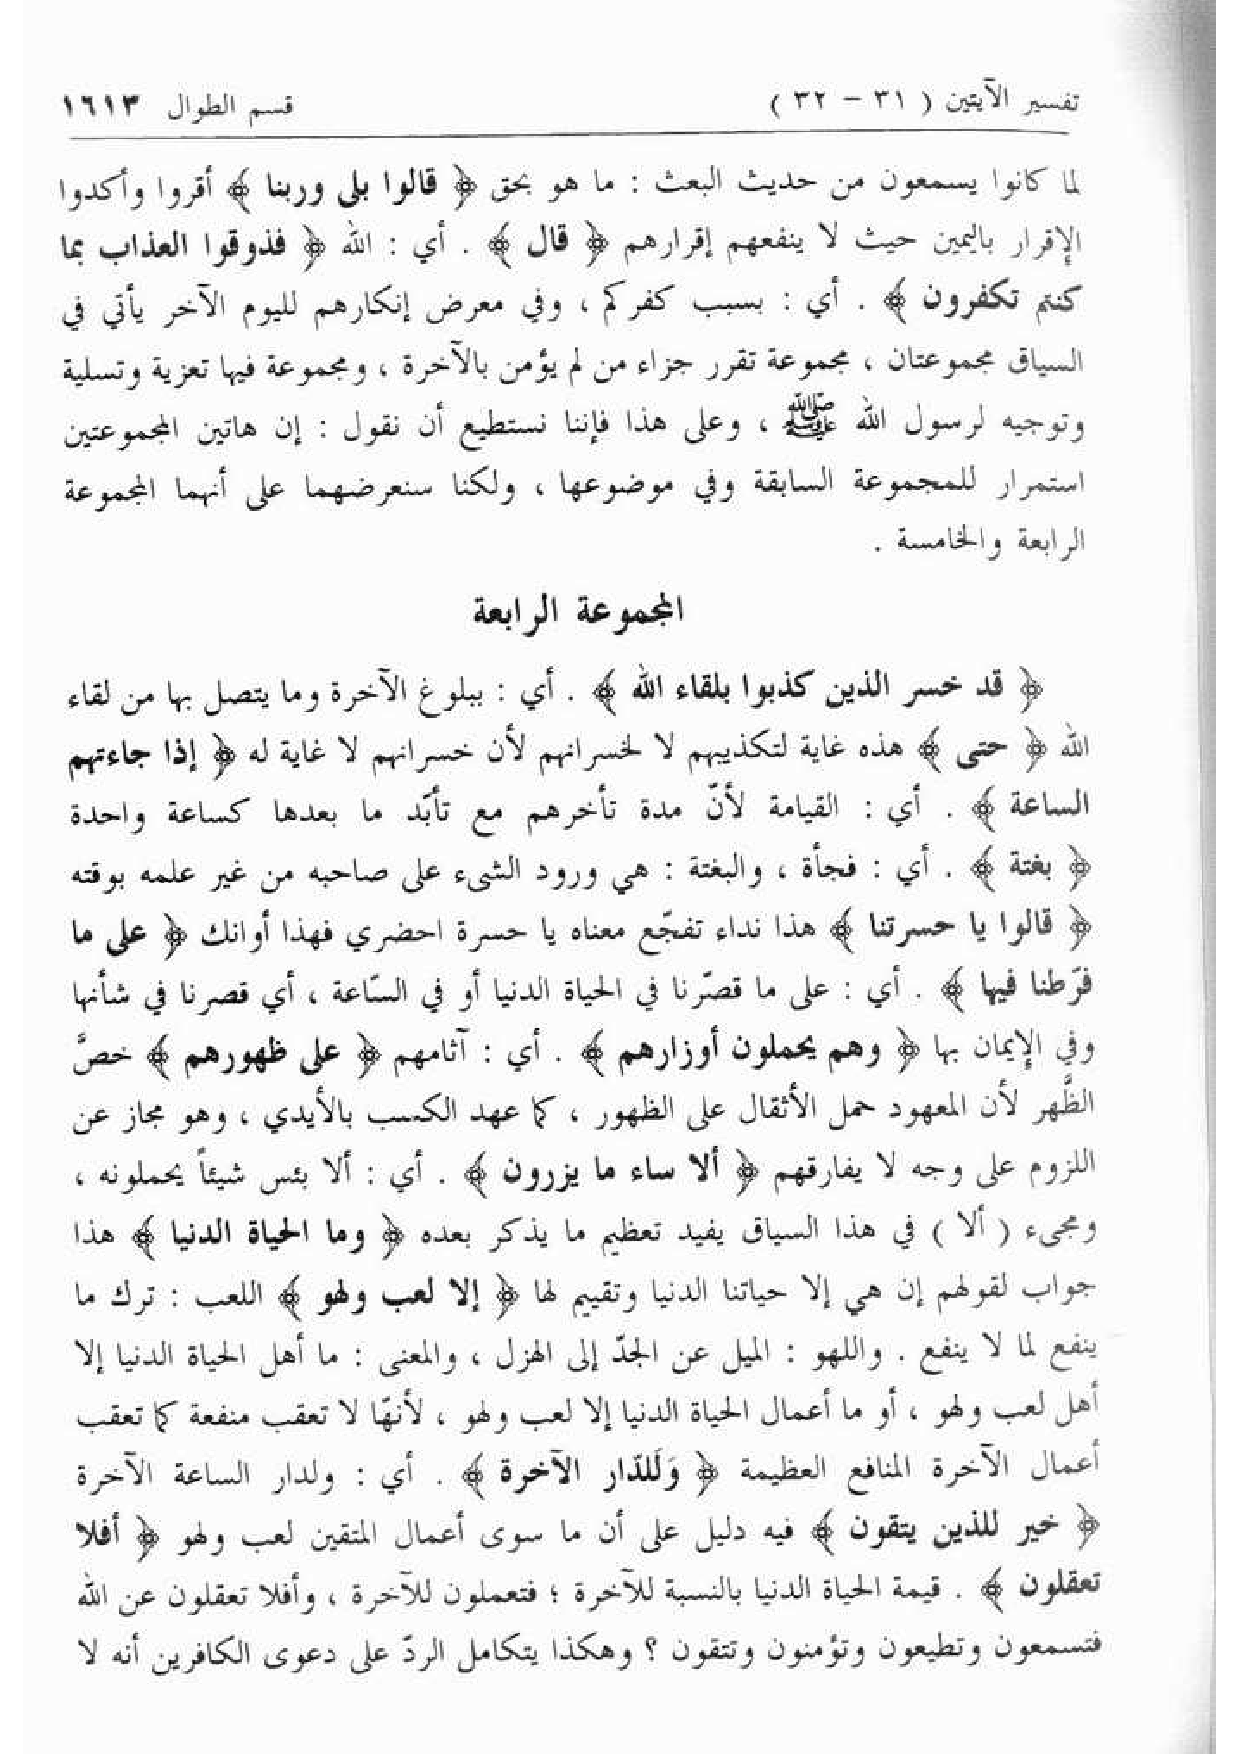 تفسير الآيتين ( ٣١ – ٣٢ ) قسم الطوال ١٦١٣
لما كانوا يسمعون من حديث البعث : ما هو بحق ﴿ قالوا بلى وربنا ﴾ أقروا وأكدوا
الإقرار باليمين حيث لا ينفعهم إقرارهم ﴿ قال ﴾ . أي : الله ﴿ فذوقوا العذاب بما
كنتم تكفرون ﴾ . أي : بسبب كفركم ، وفي معرض إنكارهم لليوم الآخر يأتي في
السياق مجموعتان ، مجموعة تقرر جزاء من لم يؤمن بالآخرة ، ومجموعة فيها تعزية وتسلية
وتوجيه لرسول الله ﷺ ، وعلى هذا فإننا نستطيع أن نقول : إن هاتين المجموعتين
استمرار للمجموعة السابقة وفي موضوعها ، ولكنا سنعرضهما على أنهما المجموعة
الرابعة والخامسة .
المجموعة الرابعة
﴿ قد خسر الذين كذبوا بلقاء الله ﴾ . أي : ببلوغ الآخرة وما يتصل بها من لقاء
الله ﴿ حتى ﴾ هذه غاية لتكذيبهم لا لخسرانهم لأن خسرانهم لا غاية له ﴿ إذا جاءتهم
الساعة ﴾ . أي : القيامة لأنّ مدة تأخرهم مع تأبّد ما بعدها كساعة واحدة
﴿ بغتة ﴾ . أي : فجأة ، والبغتة : هي ورود الشىء على صاحبه من غير علمه بوقته
﴿ قالوا يا حسرتنا ﴾ هذا نداء تفجّع معناه يا حسرة احضري فهذا أوانك ﴿ على ما
فرّطنا فيها ﴾ . أي : على ما قصّرنا في الحياة الدنيا أو في السّاعة ، أي قصرنا في شأنها
وفي الإيمان بها ﴿ وهم يحملون أوزارهم ﴾ . أي : آثامهم ﴿ على ظهورهم ﴾ خصَّ
الظَّهر لأن المعهود حمل الأثقال على الظهور ، كما عهد الكسب بالأيدي ، وهو مجاز عن
اللزوم على وجه لا يفارقهم ﴿ ألا ساء ما يزرون ﴾ . أي : ألا بئس شيئاً يحملونه ،
ومجىء ( ألا ) في هذا السياق يفيد تعظيم ما يذكر بعده ﴿ وما الحياة الدنيا ﴾ هذا
جواب لقولهم إن هي إلا حياتنا الدنيا وتقييم لها ﴿ إلا لعب ولهو ﴾ اللعب : ترك ما
ينفع لما لا ينفع . واللهو : الميل عن الجدّ إلى الهزل ، والمعنى : ما أهل الحياة الدنيا إلا
أهل لعب ولهو ، أو ما أعمال الحياة الدنيا إلا لعب ولهو ، لأنهّا لا تعقب منفعة كما تعقب
أعمال الآخرة المنافع العظيمة ﴿ وَلَلدّار الآخرة ﴾ . أي : ولدار الساعة الآخرة
﴿ خير للذين يتقون ﴾ فيه دليل على أن ما سوى أعمال المتقين لعب ولهو ﴿ أفلا
تعقلون ﴾ . قيمة الحياة الدنيا بالنسبة للآخرة ؛ فتعملون للآخرة ، وأفلا تعقلون عن الله
فتسمعون وتطيعون وتؤمنون وتتقون ؟ وهكذا يتكامل الردّ على دعوى الكافرين أنه لا